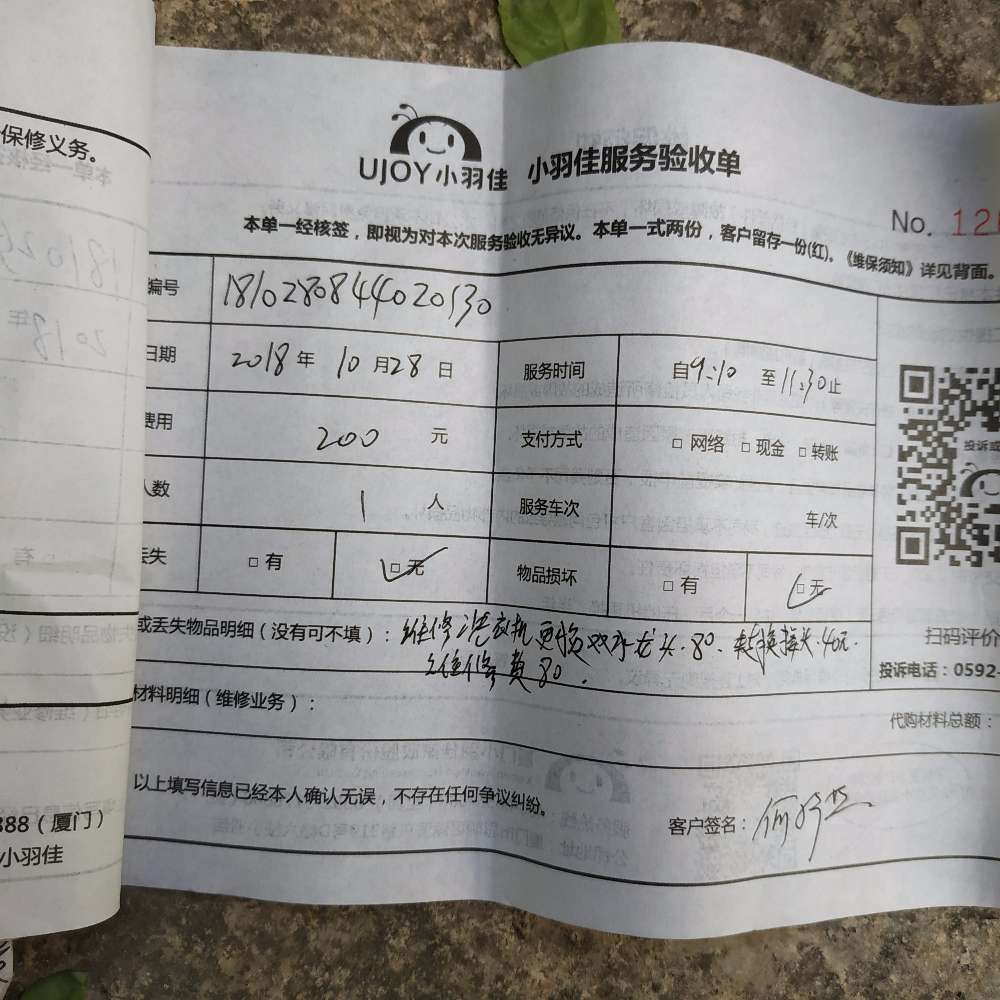 保修义务。
UJOY小羽佳 小羽佳服务验收单
No. 12
本单一经核签，即视为对本次服务验收无异议。本单一式两份，客户留存一份(红)。《维保须知》详见背面。
编号 181028084402030
日期 2018 年 10 月 28 日 服务时间 自9:10 至11:30止
费用 200 元 支付方式 □ 网络 □ 现金 □ 转账
人数 1 人 服务车次 车/次
丢失 □ 有 □ 无 物品损坏 □ 有 □ 无
投诉或
或丢失物品明细（没有可不填）：维修洗衣机更换双用龙头.80.转换接头.40元.
维修费80.
扫码评价
投诉电话：0592-
材料明细（维修业务）：
代购材料总额：
以上填写信息已经本人确认无误，不存在任何争议纠纷。
客户签名：
888（厦门）
小羽佳